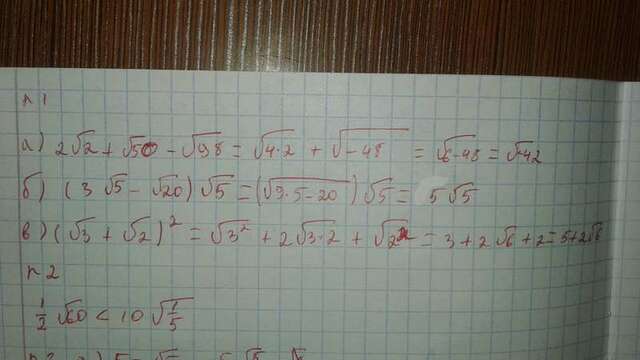 N1
а) 2√2 + √50 - √98 = √42 + √-48 = √6-48 = √42
б) (3√5 - √20) √5 = (√9·5-20) √5 = 5√5
в) (√3 + √2)² = √3² + 2√3·2 + √2² = 3 + 2√6 + 2 = 5+2√6
N2
½√60 < 10√